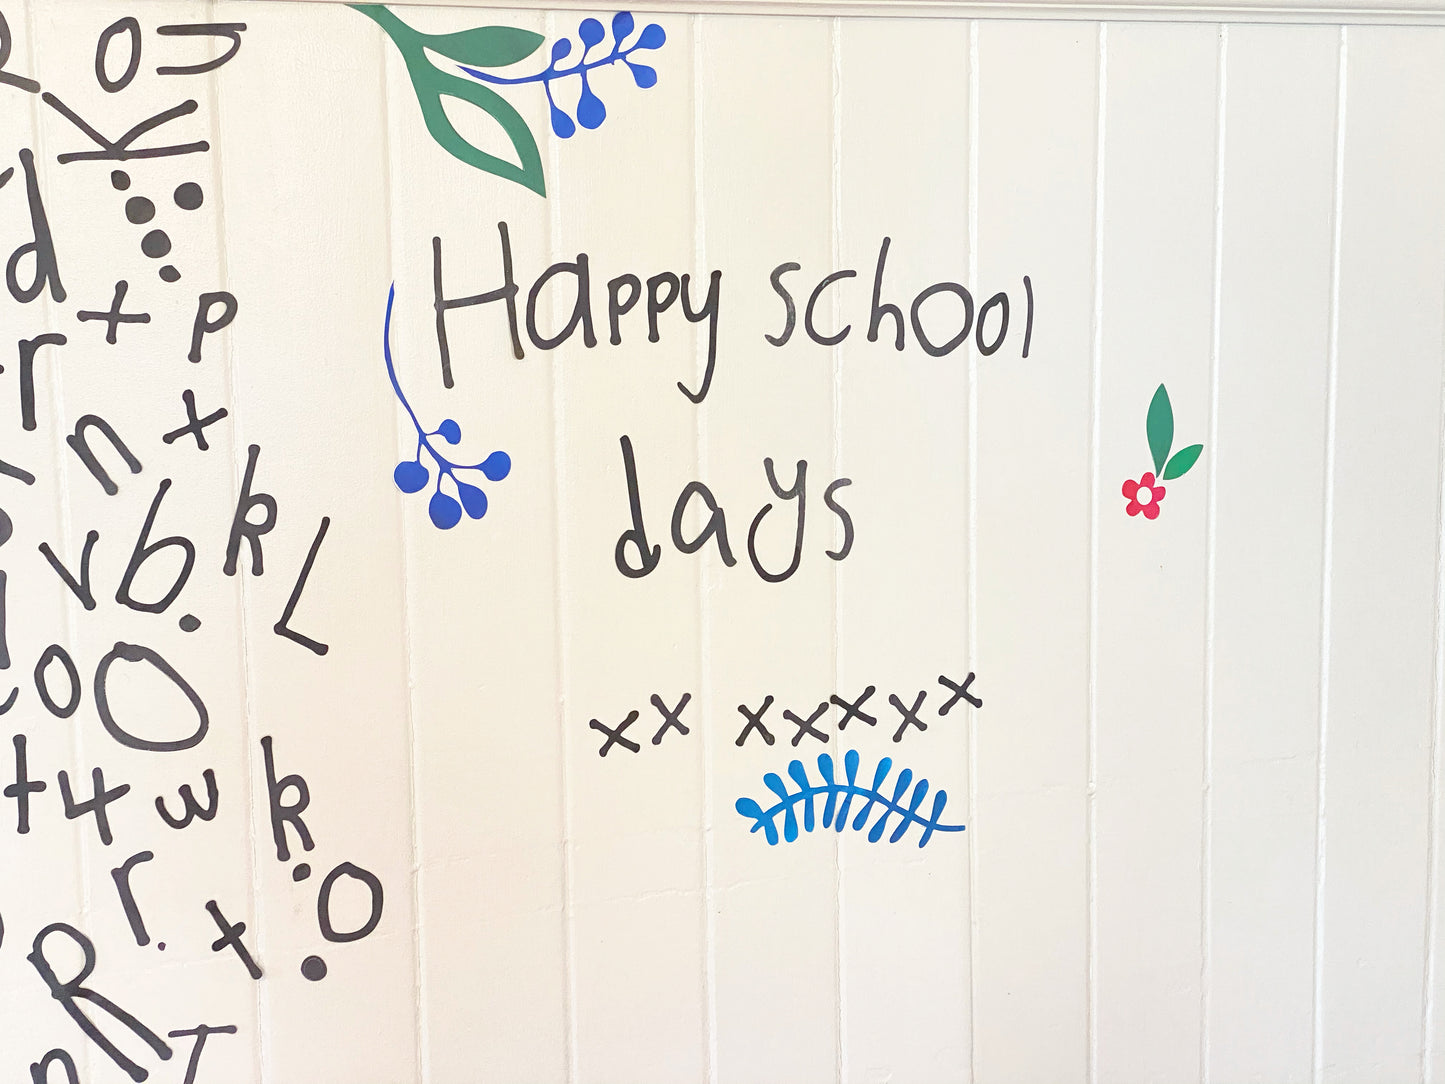 Happy school
days
xx xxxxx
R
o
n
K
d
t
p
r
n
x
k
v
b
L
o
O
t
4
w
k
r
t
o
R
T
n